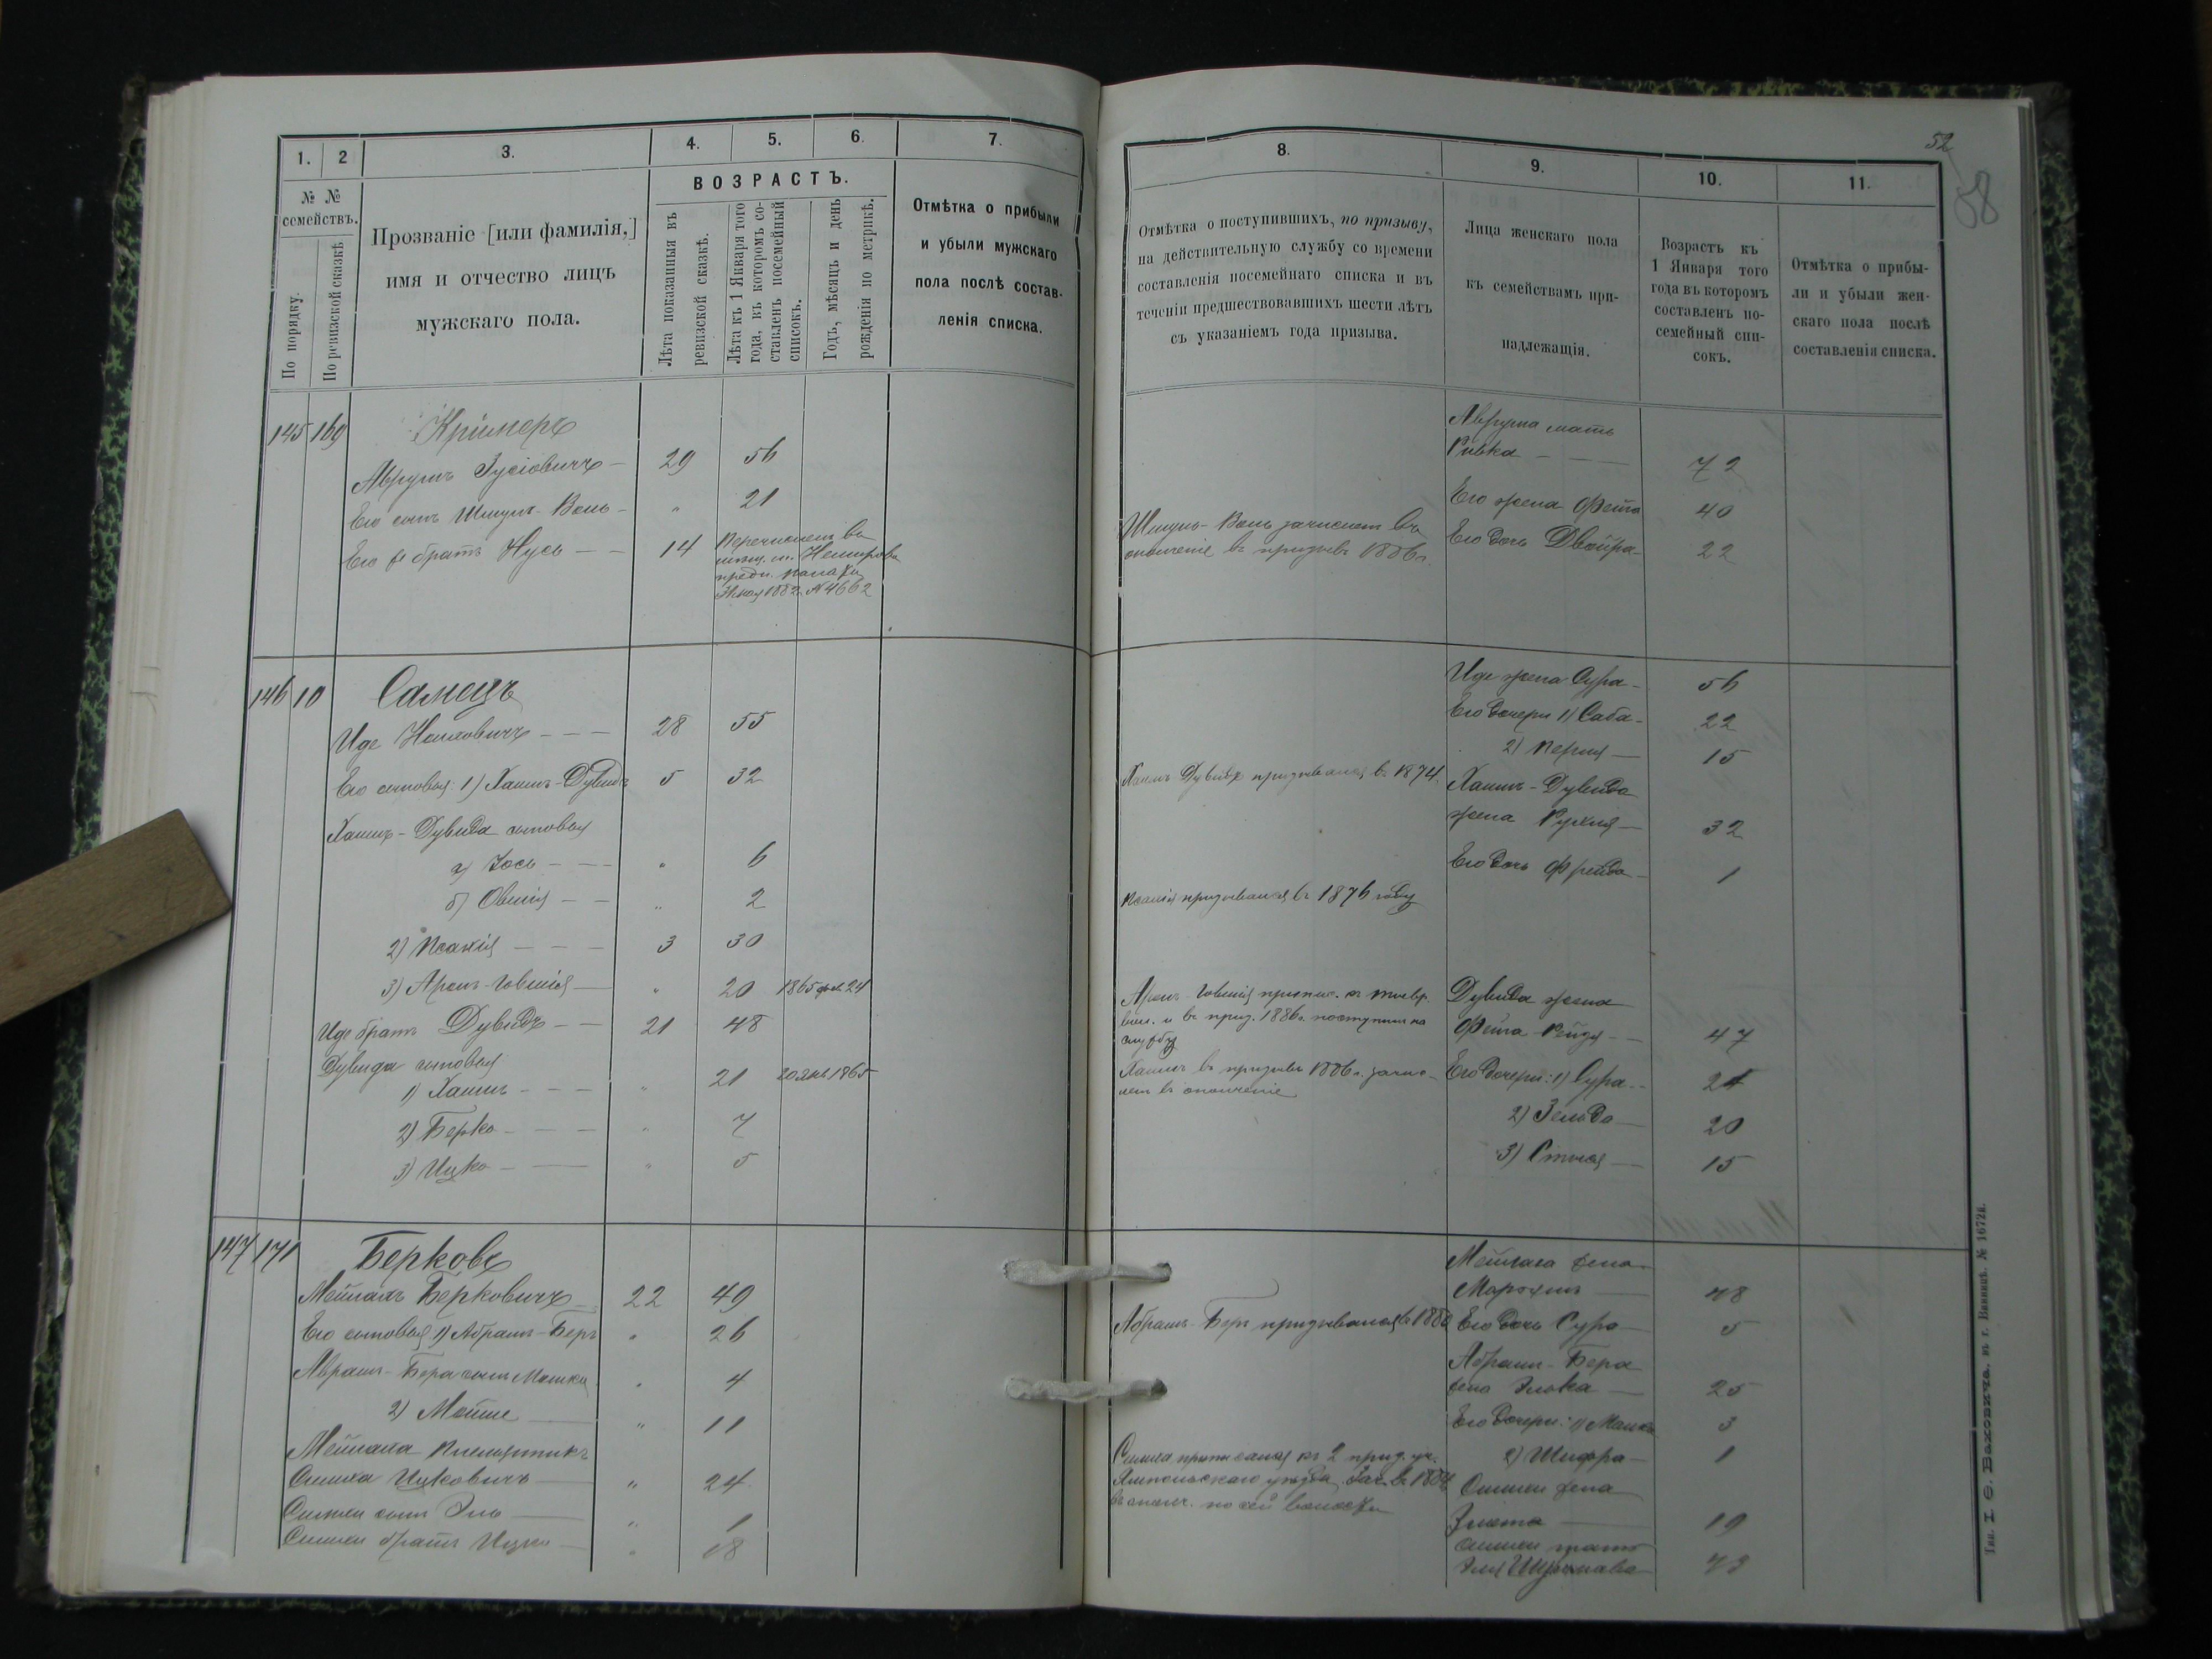 1. 2 3. 4. 5. 6. 7.
№ № семействъ.
По порядку.
По ревизской сказкѣ
Прозваніе [или фамилія,]
имя и отчество лицъ
мужскаго пола.
ВОЗРАСТЪ.
Лѣта показанныя въ
ревизской сказкѣ.
Лѣта къ 1 Января того
года, въ которомъ со-
ставленъ посемейный
списокъ.
Годъ, мѣсяцъ и день
рожденія по метрикѣ.
Отмѣтка о прибыли
и убыли мужскаго
пола послѣ состав-
ленія списка.
145 169 Кримеръ
Аврумъ Зусіовичъ — 29 56
Его сынъ Шмуль-Вель - " 21
Его же братъ Нусь — — 14 Перечисленъ въ
мѣщ. м. Немирова
предп. палаты
1882 № 4662
146 10 Самецъ
Иде Ноиховичъ — — — 28 55
Его сыновья: 1) Хаимъ-Дувидъ 5 32
Хаимъ-Дувида сыновья
а) Іось — — — " 6
б) Овшія — — " 2
2) Псахія — — — 3 30
3) Аронъ-Іовшія — " 20 1865 фев. 24
Иде братъ Дувидъ — — 21 48
Дувида сыновья
1) Хаимъ — — — " 21 20 янв 1865
2) Берко — — — " 7
3) Ицко — — " 5
147 171 Берковъ
Мейлахъ Берковичъ — 22 49
Его сыновья 1) Абрамъ-Беръ " 26
Аврамъ-Бера сынъ Мошко " 4
2) Мойше — " 11
Мейлаха племянникъ
Симха Ицковичъ — " 24
Симхи сынъ Эль — " 1
Симхи братъ Ицко — " 18
52
58
8. 9. 10. 11.
Отмѣтка о поступившихъ, по призыву,
на дѣйствительную службу со времени
составленія посемейнаго списка и въ
теченіи предшествовавшихъ шести лѣтъ
съ указаніемъ года призыва.
Лица женскаго пола
къ семействамъ при-
надлежащія.
Возрастъ къ
1 Января того
года въ которомъ
составленъ по-
семейный спи-
сокъ.
Отмѣтка о прибы-
ли и убыли жен-
скаго пола послѣ
составленія списка.
Аврума мать
Ривка — — 72
Его жена Фейга 40
Шмуль-Вель зачисленъ въ
ополченіе въ призывѣ 1886 г.
Его дочь Двойра- 22
Иде жена Сура- 56
Его дочери 1) Саба- 22
2) Перля — 15
Хаимъ Дувидъ призывался въ 1874.
Хаимъ-Дувида
жена Рухля — 32
Его дочь Фрейда- 1
Псахія призывался въ 1876 году
Аронъ-Іовшія припис. къ
и въ приз. 1886 г. поступилъ на
службу
Дувида жена
Фейга Рейзя — 47
Хаимъ въ призывѣ 1886 г. зачис-
ленъ въ ополченіе
Его дочери: 1) Сура — 24
2) Зельда — 20
3) Стися — 15
Мейлаха жена
Марохимъ — 48
Абрамъ-Беръ призывался въ 1880
Его дочь Сура — 5
Абрамъ-Бера
жена Эловка — 25
Его дочери: 1) Малка 3
2) Шифра — 1
Симха приписанъ къ 2 приз. уч.
Ямпольскаго уѣзда. Зач. въ 1884
въ ополч. по сей волости
Симхи жена
Злота — 19
Симхи мать
43
Тип. І. Ѳ. Баховича, въ г. Винниц. № 1672й.